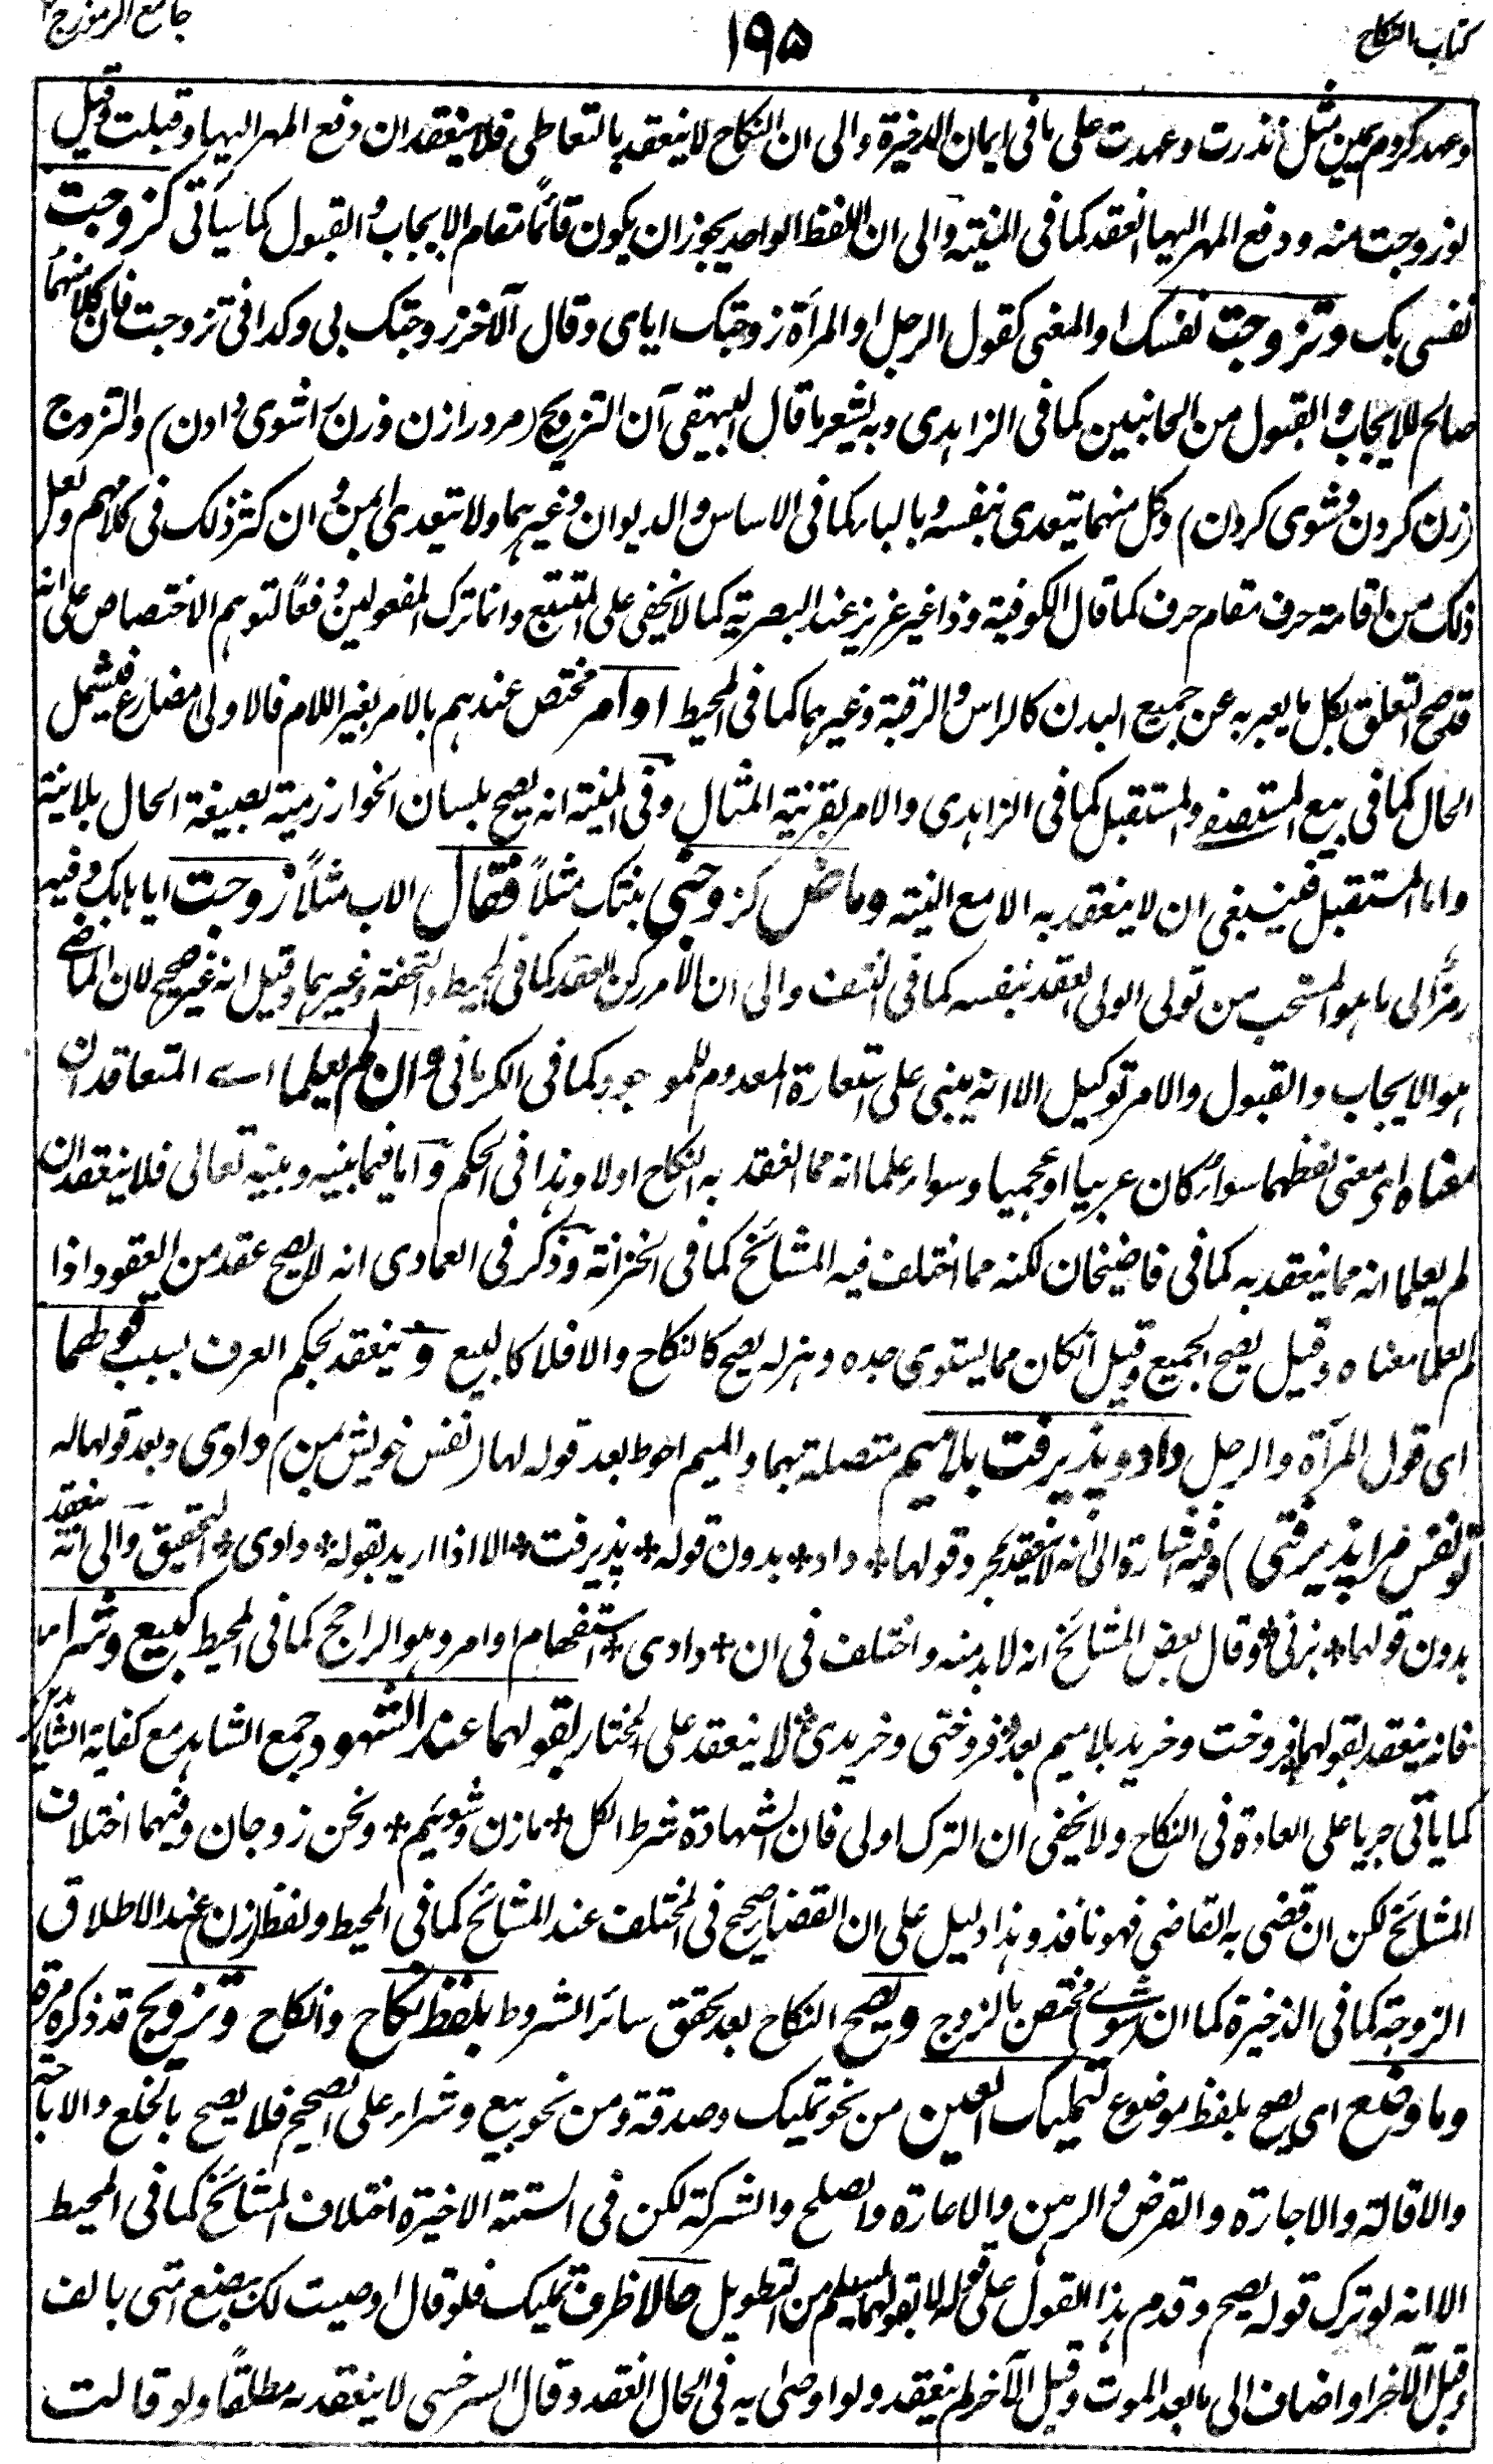 كتاب النكاح
١٩٥
جامع الرموز ج ٢
وعهد كردم يمين مثل نذرت وعهدت على ما فى ايمان الذخيرة والى ان النكاح لا ينعقد بالتعاطى فلا ينعقد ان دفع المهر اليها وقبلت وقيل
لو زوجت منه ودفع المهر اليها انعقد كما فى المنية والى ان اللفظ الواحد يجوز ان يكون قائمًا مقام الايجاب والقبول كما سيأتى كزوجت
نفسى بك وتزوجت نفسك او المعنى كقول الرجل او المرأة زوجتك اياى وقال الآخر زوجتك بى وكذا فى تزوجت فان كلا منهما
صالح للايجاب والقبول من الجانبين كما فى الزاهدى وبه يشعر ما قال البيهقى ان التزويج (مرد را زن وزن را شوى دادن) والتزوج
(زن كردن وشوى كردن) وكل منهما يتعدى بنفسه وبالباء كما فى الاساس والديوان وغيرهما ولا يتعدى بمن وان كثر ذلك فى كلامهم ولعل
ذلك من اقامة حرف مقام حرف كما قال الكوفية وذا غير عزيز عند البصرية كما لا يخفى على المتتبع وانما ترك المفعولين دفعًا لتوهم الاختصاص على انه
قد صح التعلق بكل ما يعبر به عن جميع البدن كالراس والرقبة وغيرهما كما فى المحيط او امر مختص عندهم بالامر بغير اللام فالاولى مضارع فيشمل
الحال كما فى بيع المستصفى والمستقبل كما فى الزاهدى والامر بقرينة المثال وفى المنية انه يصح بلسان الخوارزمية بصيغة الحال بلا نية
واما المستقبل فينبغى ان لا ينعقد به الا مع النية وماض كزوجنى بنتك مثلاً فقال الاب مثلاً زوجت اياها بك وفيه
رمز الى ما هو المستحب من تولى الولى العقد بنفسه كما فى النتف والى ان الامر ركن العقد كما فى المحيط والتحفة وغيرهما وقيل انه غير صحيح لان الماضى
هو الايجاب والقبول والامر توكيل الا انه يبنى على استعارة المعدوم للموجود كما فى الكرمانى وان لم يعلما اے المتعاقدان
معناه اى معنى لفظهما سواء كان عربيا او عجميا وسواء علما انه مما انعقد به النكاح اولا وهذا فى الحكم واما فيما بينه وبينه تعالى فلا ينعقد ان
لم يعلما انه مما ينعقد به كما فى قاضيخان لكنه مما اختلف فيه المشائخ كما فى الخزانة وذكر فى العمادى انه لا يصح عقد من العقود اذا
لم يعلما معناه وقيل يصح الجميع وقيل ان كان مما يستوى جده وهزله يصح كالنكاح والا فلا كالبيع و ينعقد بحكم العرف بسبب قولهما
اى قول المرأة والرجل داد وپذيرفت بلا ميم متصلة بهما والميم احوط بعد قوله لها (نفس خويش من) دادى وبعد قولها له
(تو نفس مرا پذيرفتى) وفيه اشارة الى انه لا ينعقد بمجرد قولها * داد * بدون قوله * پذيرفت * الا اذا اريد بقوله * دادى * التحقيق والى انه ينعقد
بدون قولها * بزنى * وقال بعض المشائخ انه لا بد منه واختلف فى ان * دادى * استفهام او امر وهو الراجح كما فى المحيط كبيع وشراء
فانه ينعقد بقولهما فروخت وخريد بلا ميم بعد فروختى وخريدى لا ينعقد على المختار بقولهما عند الشهود وجمع الشاهد مع كفاية الشاهدين
كما ياتى جريا على العادة فى النكاح ولا يخفى ان الترك اولى فان الشهادة شرط الكل * ما زن وشوئيم * ونحن زوجان وفيهما اختلاف
المشائخ لكن ان قضى به القاضى فهو نافذ وهذا دليل على ان القضاء صحيح فى المختلف عند المشائخ كما فى المحيط ولفظ (زن) عند الاطلاق
الزوجة كما فى الذخيرة كما ان (شوے) مختص بالزوج و يصح النكاح بعد تحقق سائر الشروط بلفظ نكاح وانكاح وتزويج قد ذكره مرة
وما وضع اى يصح بلفظ موضوع لتمليك العين من نحو تمليك وصدقة ومن نحو بيع وشراء على الصحيح فلا يصح بالخلع والاباحة
والاقالة والاجارة والقرض والرهن والاعارة والصلح والشركة لكن فى الستة الاخيرة اختلاف المشائخ كما فى المحيط
الا انه لو ترك قوله يصح وقدم هذا القول على قوله لا بقولهما لسلم من التطويل حالا ظرف تمليك فلو قال اوصيت لك ببضع امتى بالف
وقبل الآخر او اضاف الى ما بعد الموت وقبل الآخر لم ينعقد ولو اوصى به فى الحال انعقد وقال السرخسى لا ينعقد به مطلقًا ولو قالت